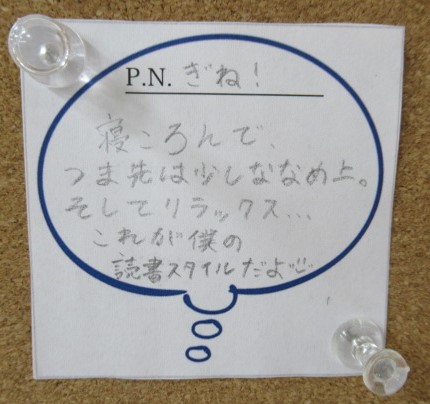 P.N. ぎね!
寝ころんで、
つま先は少しななめ上。
そしてリラックス...
これが僕の
読書スタイルだよ